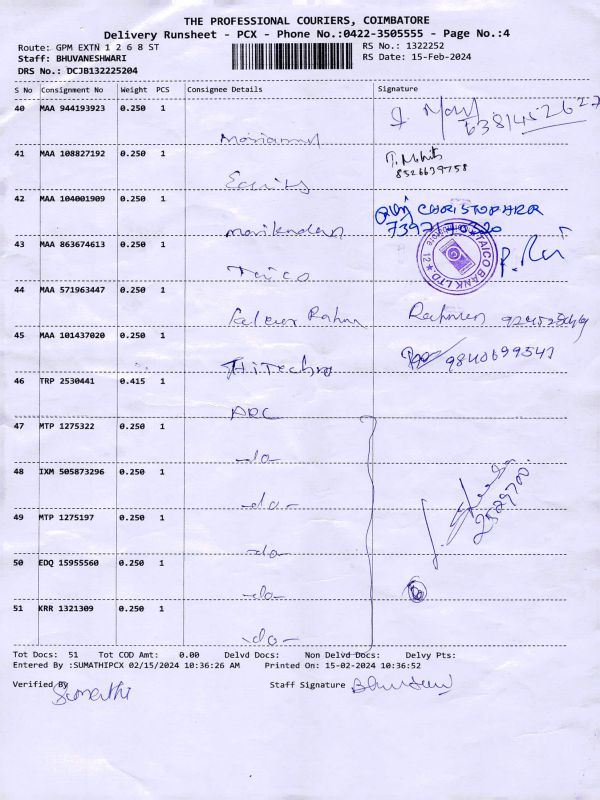 THE PROFESSIONAL COURIERS, COIMBATORE
Delivery Runsheet - PCX - Phone No.:0422-3505555 - Page No.:4
Route: GPM EXTN 1 2 6 8 ST RS No.: 1322252
Staff: BHUVANESHWARI RS Date: 15-Feb-2024
DRS No.: DCJB132225204
S No Consignment No Weight PCS Consignee Details Signature
40 MAA 944193923 0.250 1
41 MAA 108827192 0.250 1 T. Mohits
8526639758
Equity
42 MAA 104001909 0.250 1 CHRISTOPHER
Manikandan
43 MAA 863674613 0.250 1 TAICO BANK LTD. 12
Taico
44 MAA 571963447 0.250 1
Rahman
45 MAA 101437020 0.250 1 9840699541
Hitechro
46 TRP 2530441 0.415 1
ADC
47 MTP 1275322 0.250 1
-do-
48 IXM 505873296 0.250 1
-do-
49 MTP 1275197 0.250 1
-do-
50 EDQ 15955560 0.250 1
-do-
51 KRR 1321309 0.250 1
-do-
Tot Docs: 51 Tot COD Amt: 0.00 Delvd Docs: Non Delvd Docs: Delvy Pts:
Entered By :SUMATHIPCX 02/15/2024 10:36:26 AM Printed On: 15-02-2024 10:36:52
Verified By Sumathi Staff Signature